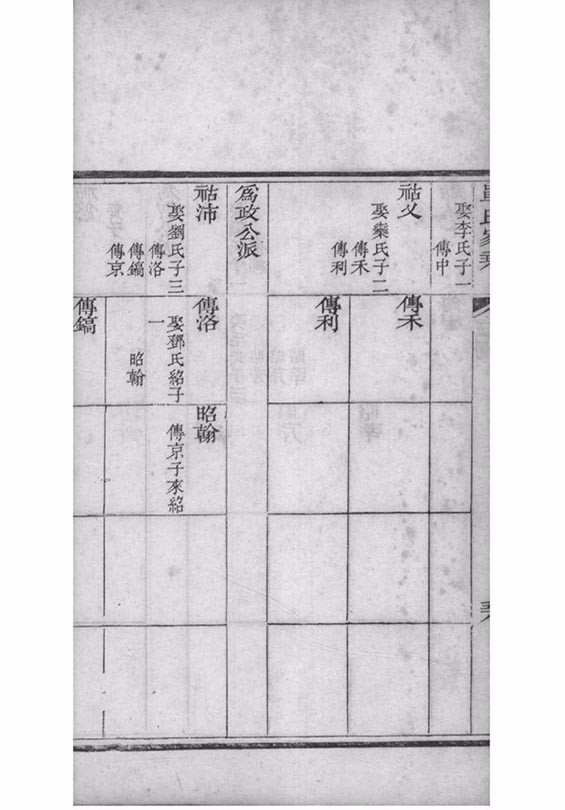 娶李氏子一
傳中
祜乂
娶欒氏子二
傳禾
傳利
傳禾
傳利
為政公派
祜沛
娶劉氏子三
傳洛
傳鎬
傳京
傳洛
娶鄧氏紹子
一
昭翰
昭翰
傳京子來紹
傳鎬